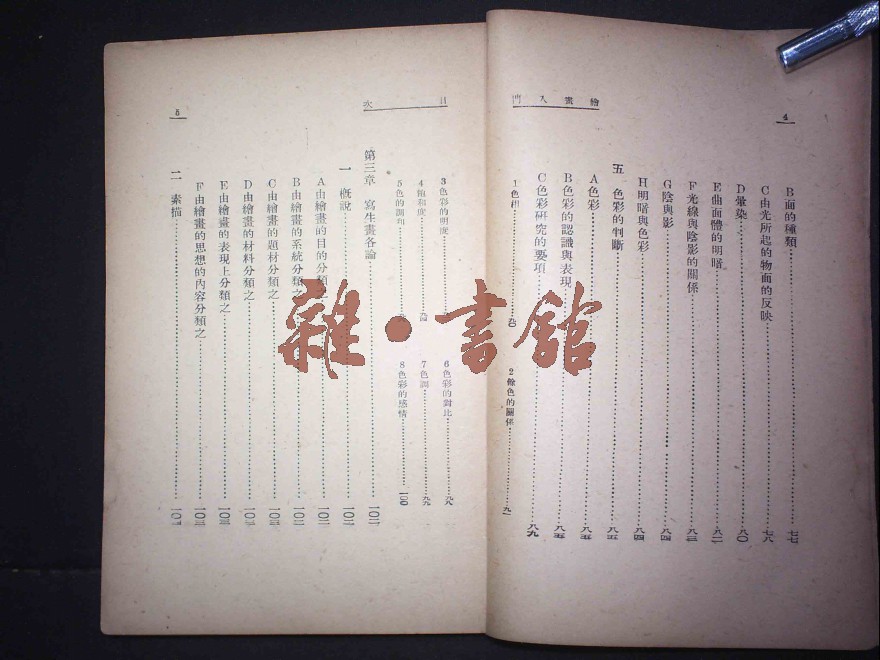 繪畫入門
4
B面的種類……七七
C由光所起的物面的反映……七八
D暈染……八〇
E曲面體的明暗……八二
F光線與陰影的關係……八三
G陰與影……八四
H明暗與色彩……八四
五 色彩的判斷……八五
A色彩……八五
B色彩的認識與表現……八五
C色彩研究的要項……八九
1色相
2餘色的關係……九一
目次
5
3色彩的明度
6色彩的對比……九八
4飽和度
7色調……九九
5色的調和
8色彩的感情……一〇〇
第三章 寫生畫各論……一〇二
一 概說……一〇二
A由繪畫的目的分類之……一〇二
B由繪畫的系統分類之……一〇二
C由繪畫的題材分類之……一〇二
D由繪畫的材料分類之……一〇三
E由繪畫的表現上分類之……一〇三
F由繪畫的思想的內容分類之……一〇三
二 素描
雜·書館